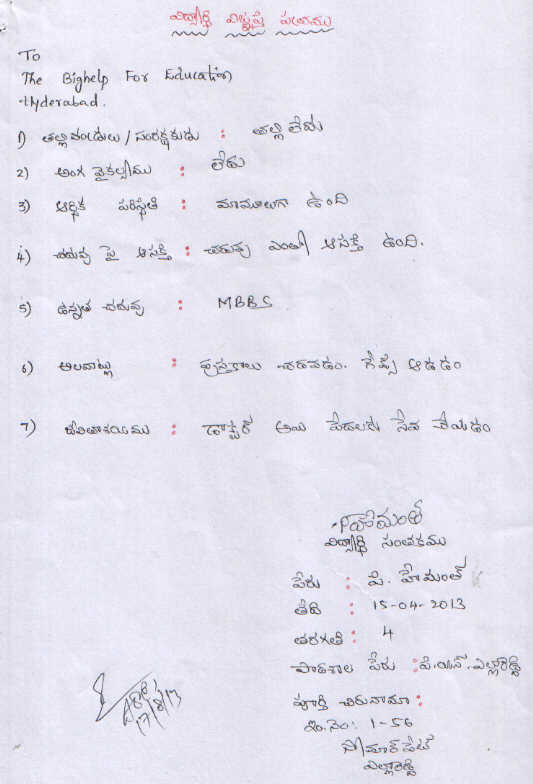 విద్యార్థి విజ్ఞప్తి పత్రము
To
The Bighelp For Education
Hyderabad.
1) తల్లిదండ్రులు / సంరక్షకుడు : తల్లి లేదు
2) అంగ వైకల్యము : లేదు
3) ఆర్థిక పరిస్థితి : మామూలుగా ఉంది
4) చదువు పై ఆసక్తి : చదువు ఎంతో ఆసక్తి ఉంది.
5) ఉన్నత చదువు : MBBS
6) అలవాట్లు : పుస్తకాలు చదవడం. గేమ్స్ ఆడడం
7) జీవితాశయము : డాక్టర్ అయి పేదలకు సేవ చేయడం
విద్యార్థి సంతకము
పేరు : పి. హేమంత్
తేది : 15-04-2013
తరగతి : 4
పాఠశాల పేరు : పి.యస్. ఎల్లారెడ్డి
పూర్తి చిరునామా :
ఇం.నెం: 1-56
సోమార్ పేట్
ఎల్లారెడ్డి